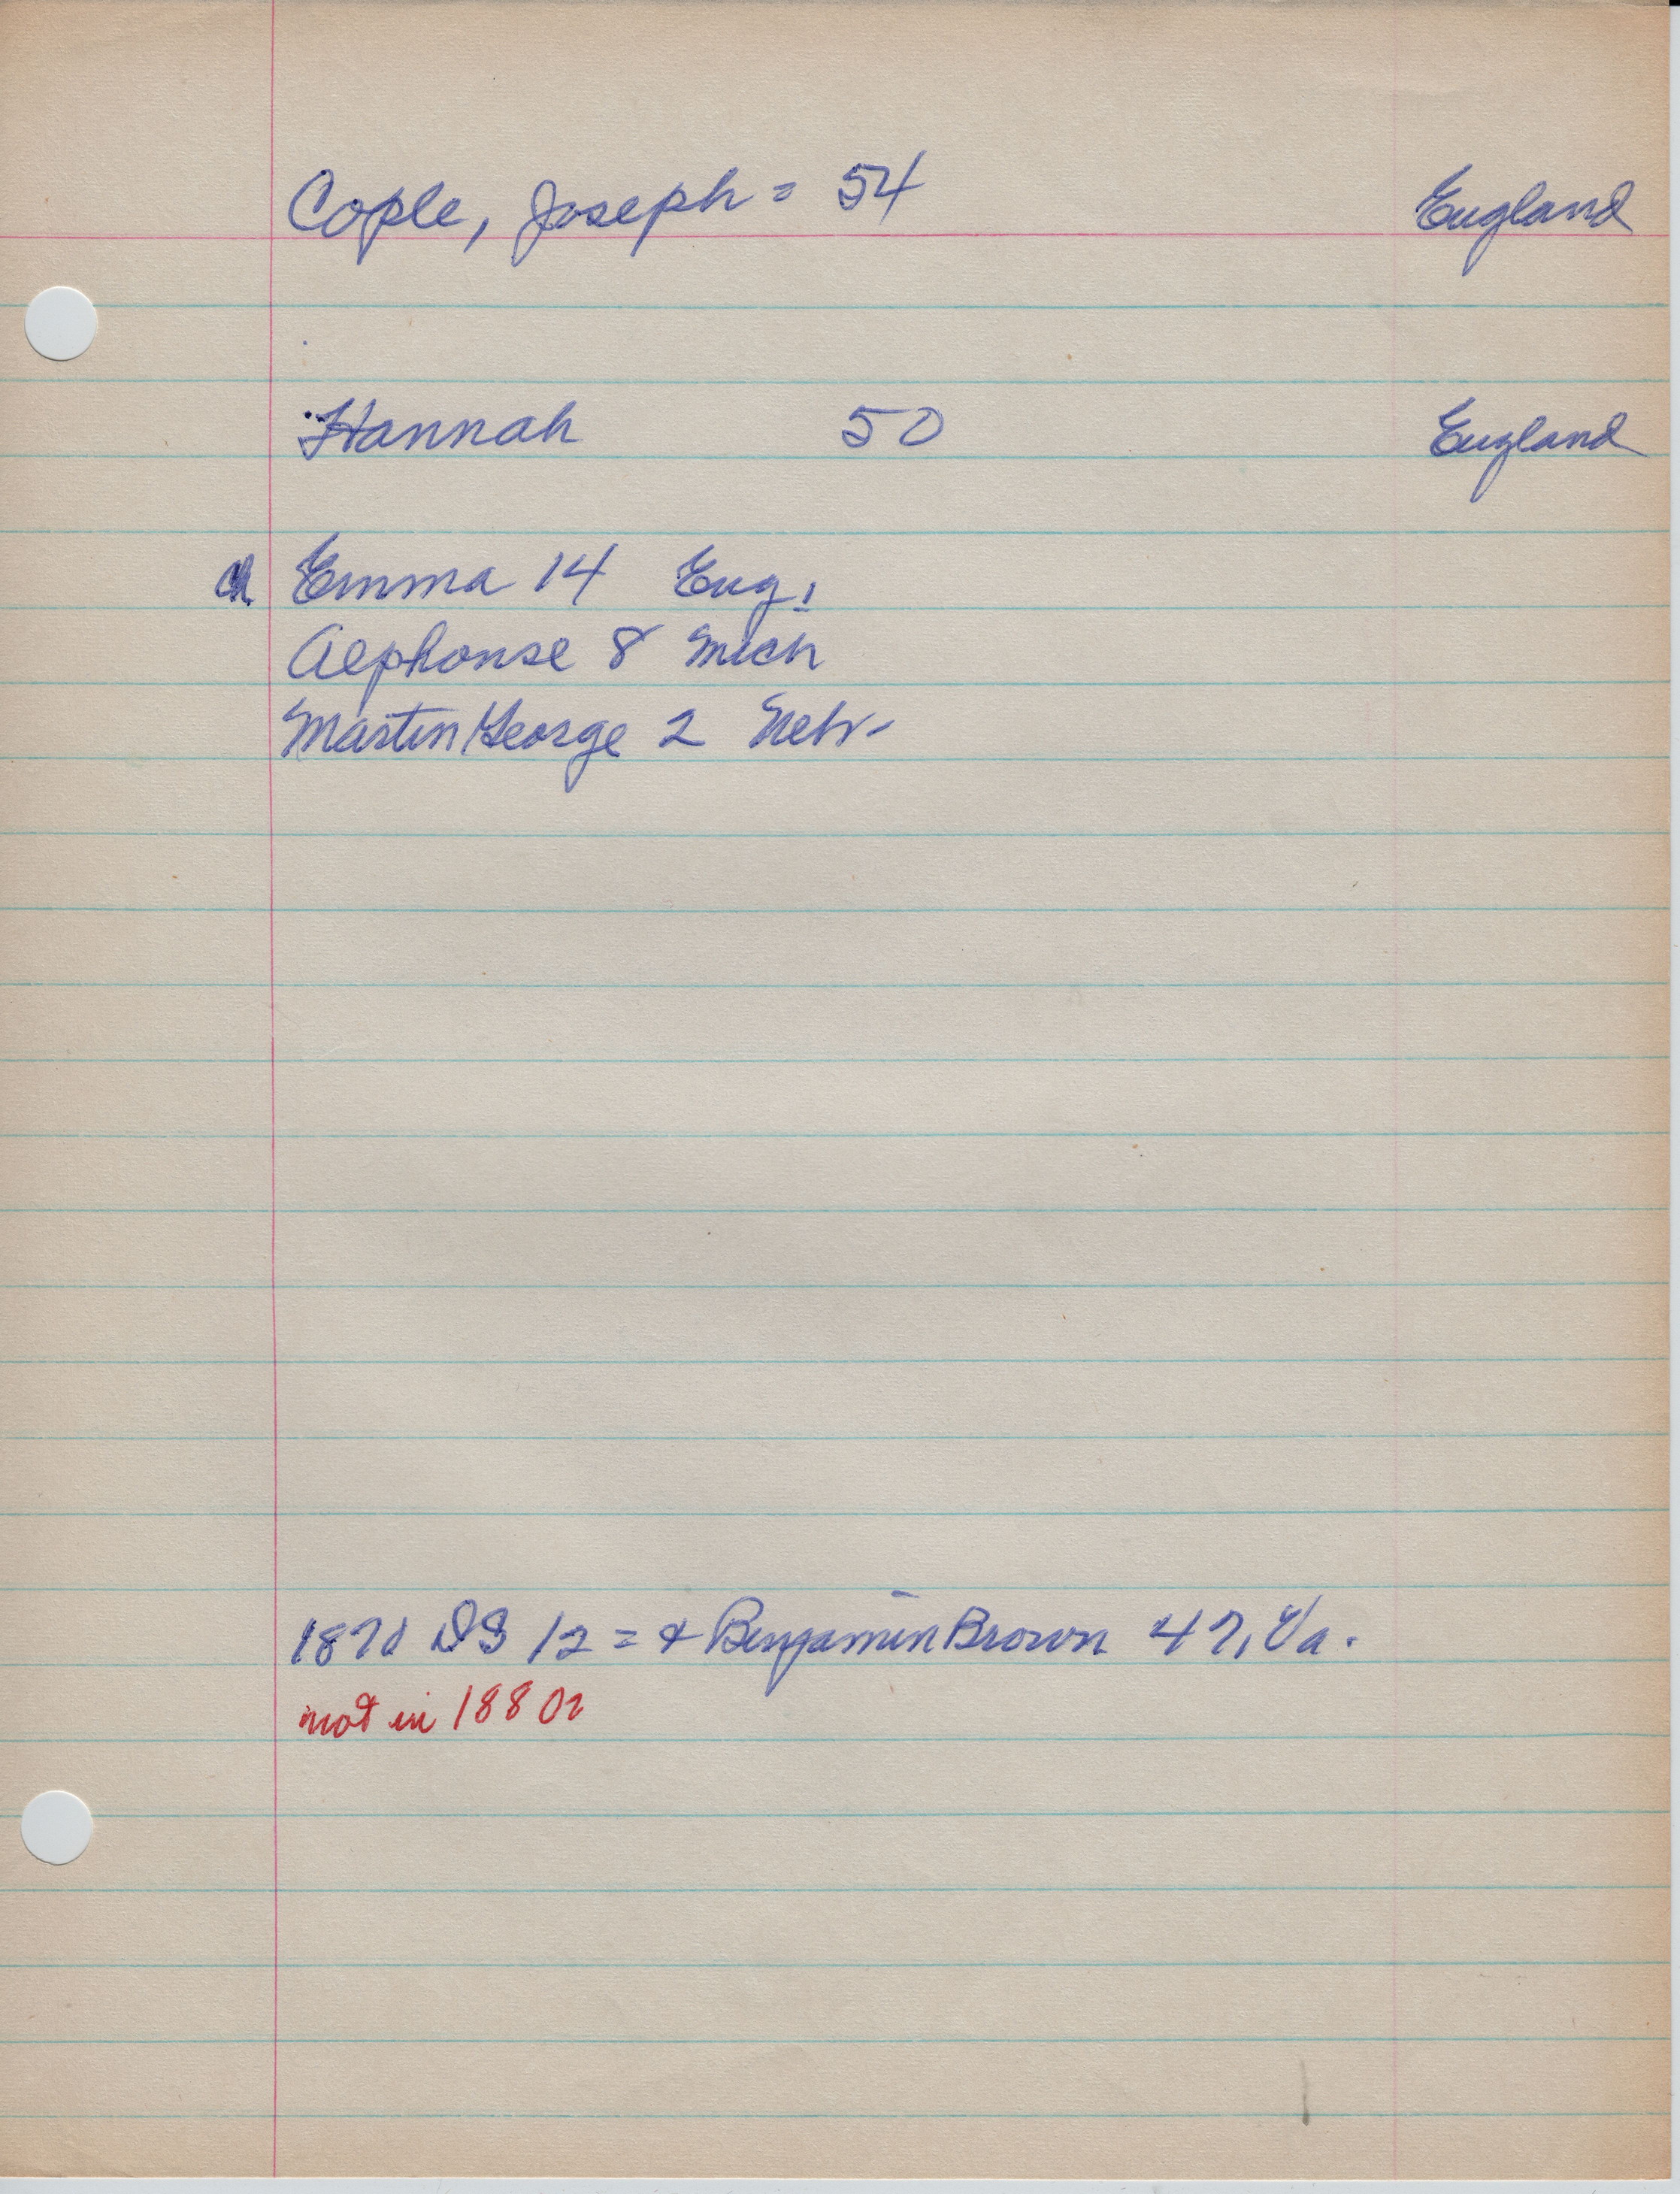 Cople, Joseph = 54 England
Hannah 50 England
ch Emma 14 Eng.
Alphonse 8 Mich
Martin George 2 Nebr.
1870 DS 12 = & Benjamin Brown 47, Va.
not in 1880